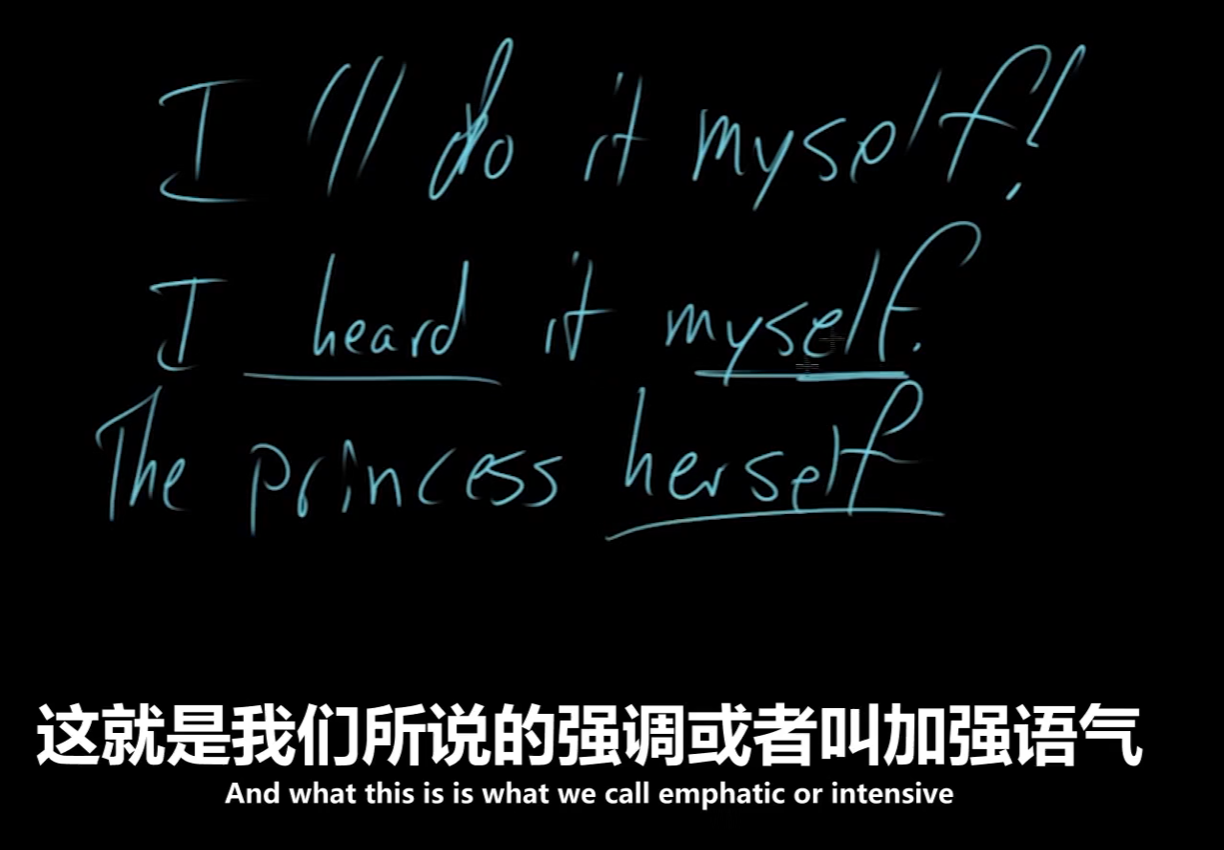 I'll do it myself!
I heard it myself.
The princess herself
这就是我们所说的强调或者叫加强语气
And what this is is what we call emphatic or intensive